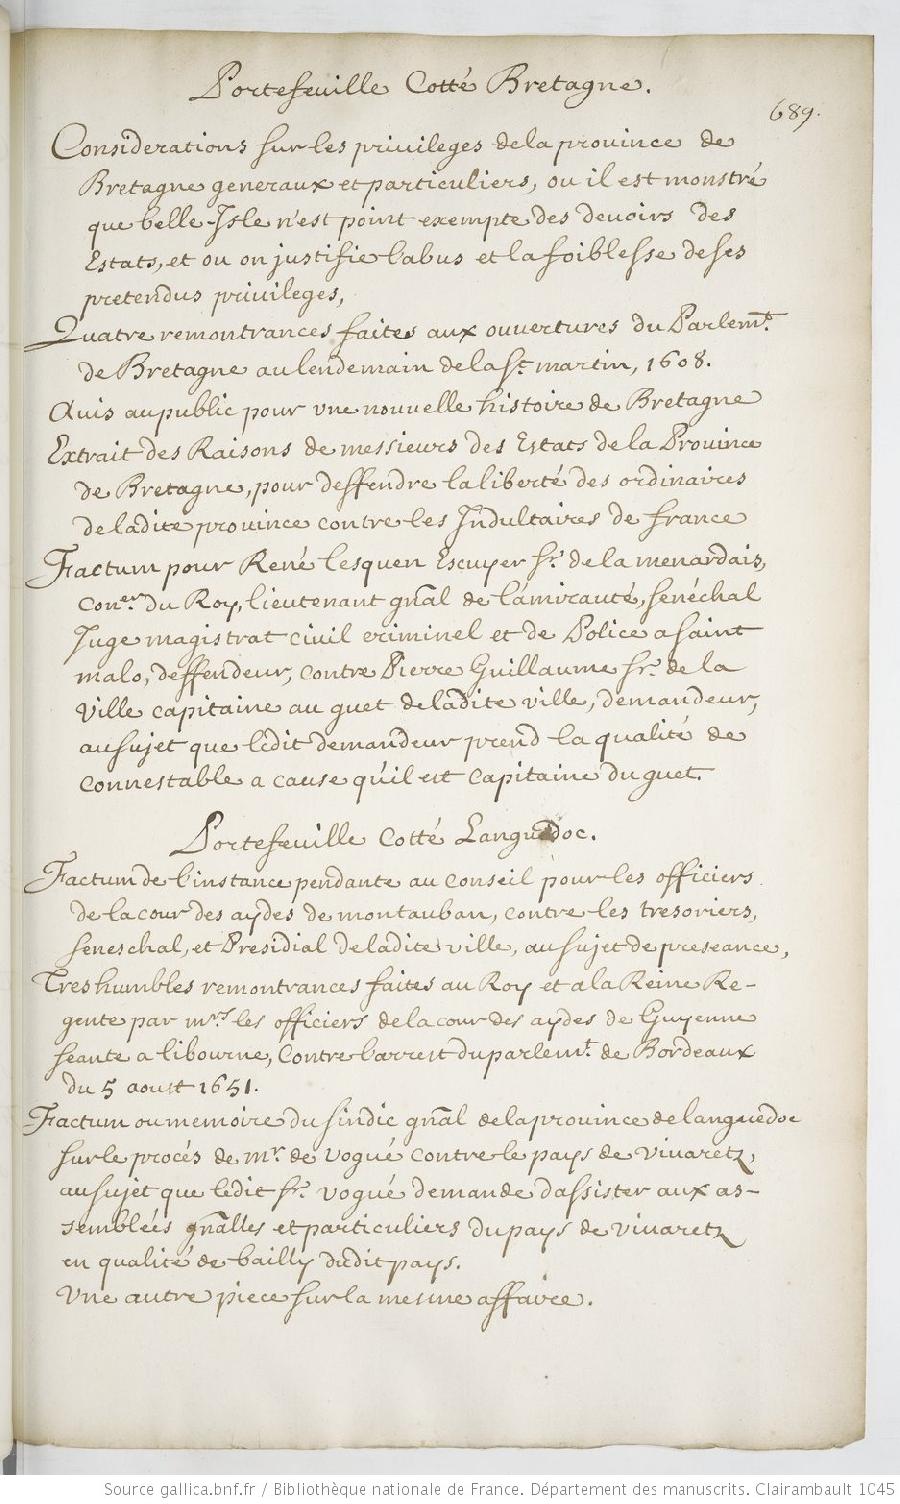 Portefeuille Cotté Bretagne.
689.
Considerations sur les priuileges de la prouince de
Bretagne generaux et particuliers, ou il est monstré
que belle-Isle n'est point exempte des deuoirs des
Estats, et ou on justifie l'abus et la foiblesse de ses
pretendus priuileges,
Quatre remontrances faites aux ouuertures du Parlemt.
de Bretagne au lendemain de la St. martin, 1608.
Auis au public pour vne nouuelle histoire de Bretagne
Extrait des Raisons de messieurs des Estats de la Prouince
de Bretagne, pour deffendre la liberté des ordinaires
de ladite prouince contre les Indultaires de france
Factum pour René Lesquen Escuyer Sr. de la menardais,
Coner. du Roy, lieutenant gnāl de l'amirauté, senéchal
Juge magistrat ciuil criminel et de Police a saint
malo, deffendeur, contre Pierre Guillaume Sr. de la
Ville capitaine au guet de ladite ville, demandeur,
au sujet que ledit demandeur prend la qualité de
connestable a cause qu'il est Capitaine du guet.
Portefeuille Cotté Languedoc.
Factum de l'instance pendante au Conseil pour les officiers
de la cour des aydes de montauban, contre les tresoriers,
seneschal, et Presidial de ladite ville, au sujet de preseance,
Tres humbles remontrances faites au Roy et a la Reine Re-
gente par mrs. les officiers de la cour des aydes de Guyenne
seante a libourne, Contre l'arrest du parlemt. de Bordeaux
du 5 aoust 1651.
Factum ou memoire du sindic gnāl de la prouince de languedoc
sur le procés de mr. de vogué contre le pays de viuaretz,
au sujet que ledit Sr. vogué demande d'assister aux as-
semblées gnālles et particuliers du pays de viuaretz
en qualité de bailly dudit pays.
Vne autre piece sur la mesme affaire.
Source gallica.bnf.fr / Bibliothèque nationale de France. Département des manuscrits. Clairambault 1045